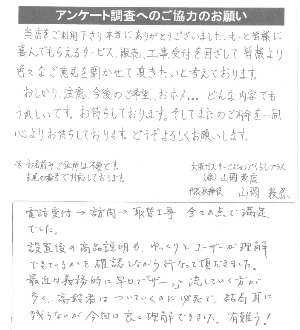 アンケート調査へのご協力のお願い
当店をご利用下さり本当にありがとうございました。もっと皆様に
喜んでもらえるサービス、販売、工事受付を目ざして皆様より
色々なご意見を聞かせて頂きたいと考えております。
おしかり、注意、今後のご希望、おホメ… どんな内容でも
うれしいです。お待ちしております。そしてまたのご用命を一同
心よりお待ちしております。どうぞよろしくお願いします。
電話受付→訪問→取替工事 全ての点で満足
でした。
設置後の商品説明も、ゆっくりとユーザーが理解
できているかを確認しながら行なって頂きました。
最近は義務的に早口でザーッと流していく方が
多く、高齢者はついていくのに必死で、結局耳に
残らないが今回は良く理解できました。有難う!